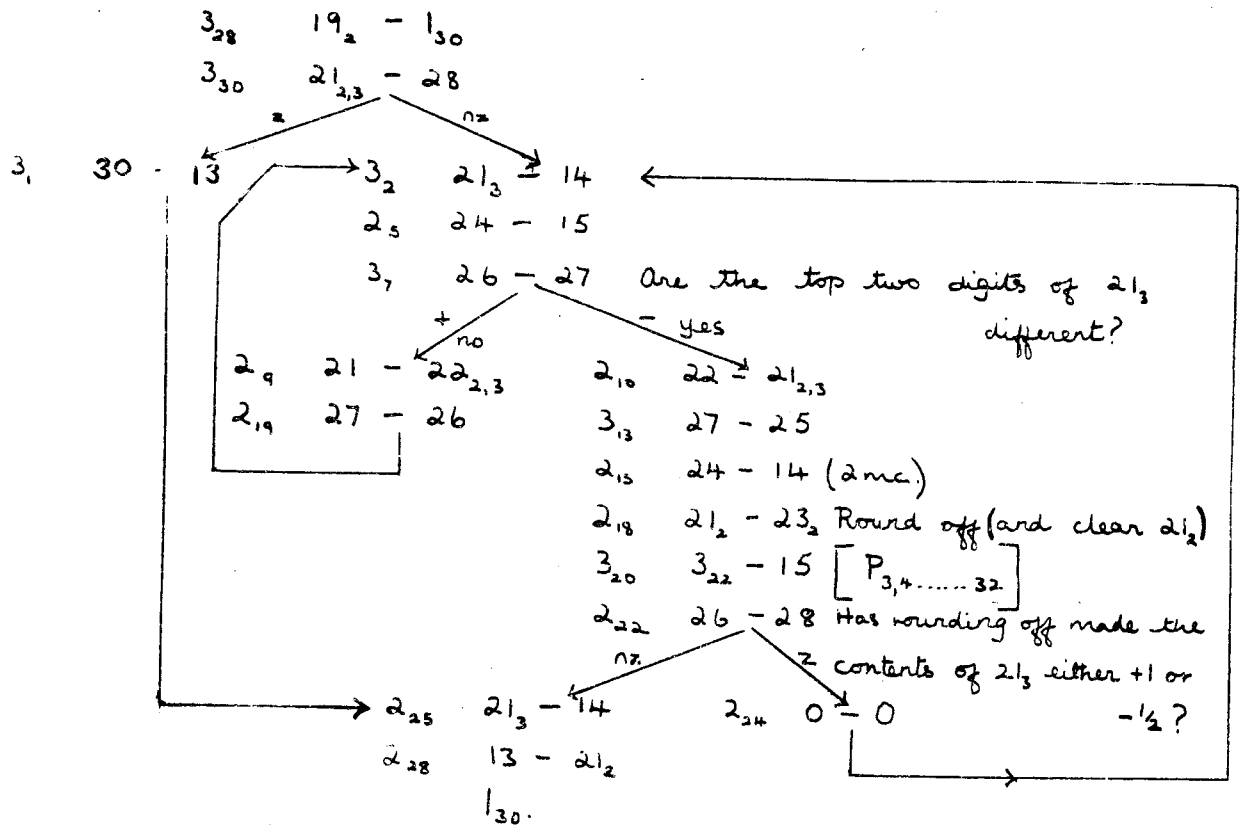 3₂₈ 19₂ - 1₃₀
3₃₀ 21₂,₃ - 28
z nz
3₁ 30 - 13 3₂ 21₃ - 14
2₅ 24 - 15
3₇ 26 - 27 Are the top two digits of 21₃
different?
+ no - yes
2₉ 21 - 22₂,₃ 2₁₀ 22 - 21₂,₃
2₁₉ 27 - 26 3₁₃ 27 - 25
2₁₅ 24 - 14 (2 mc.)
2₁₈ 21₂ - 23₂ Round off (and clear 21₂)
3₂₀ 3₂₂ - 15 [P₃,₄......₃₂]
2₂₂ 26 - 28 Has rounding off made the
nz z contents of 21₃ either +1 or
2₂₅ 21₃ - 14 2₂₄ 0 - 0 -½?
2₂₈ 13 - 21₂
1₃₀.